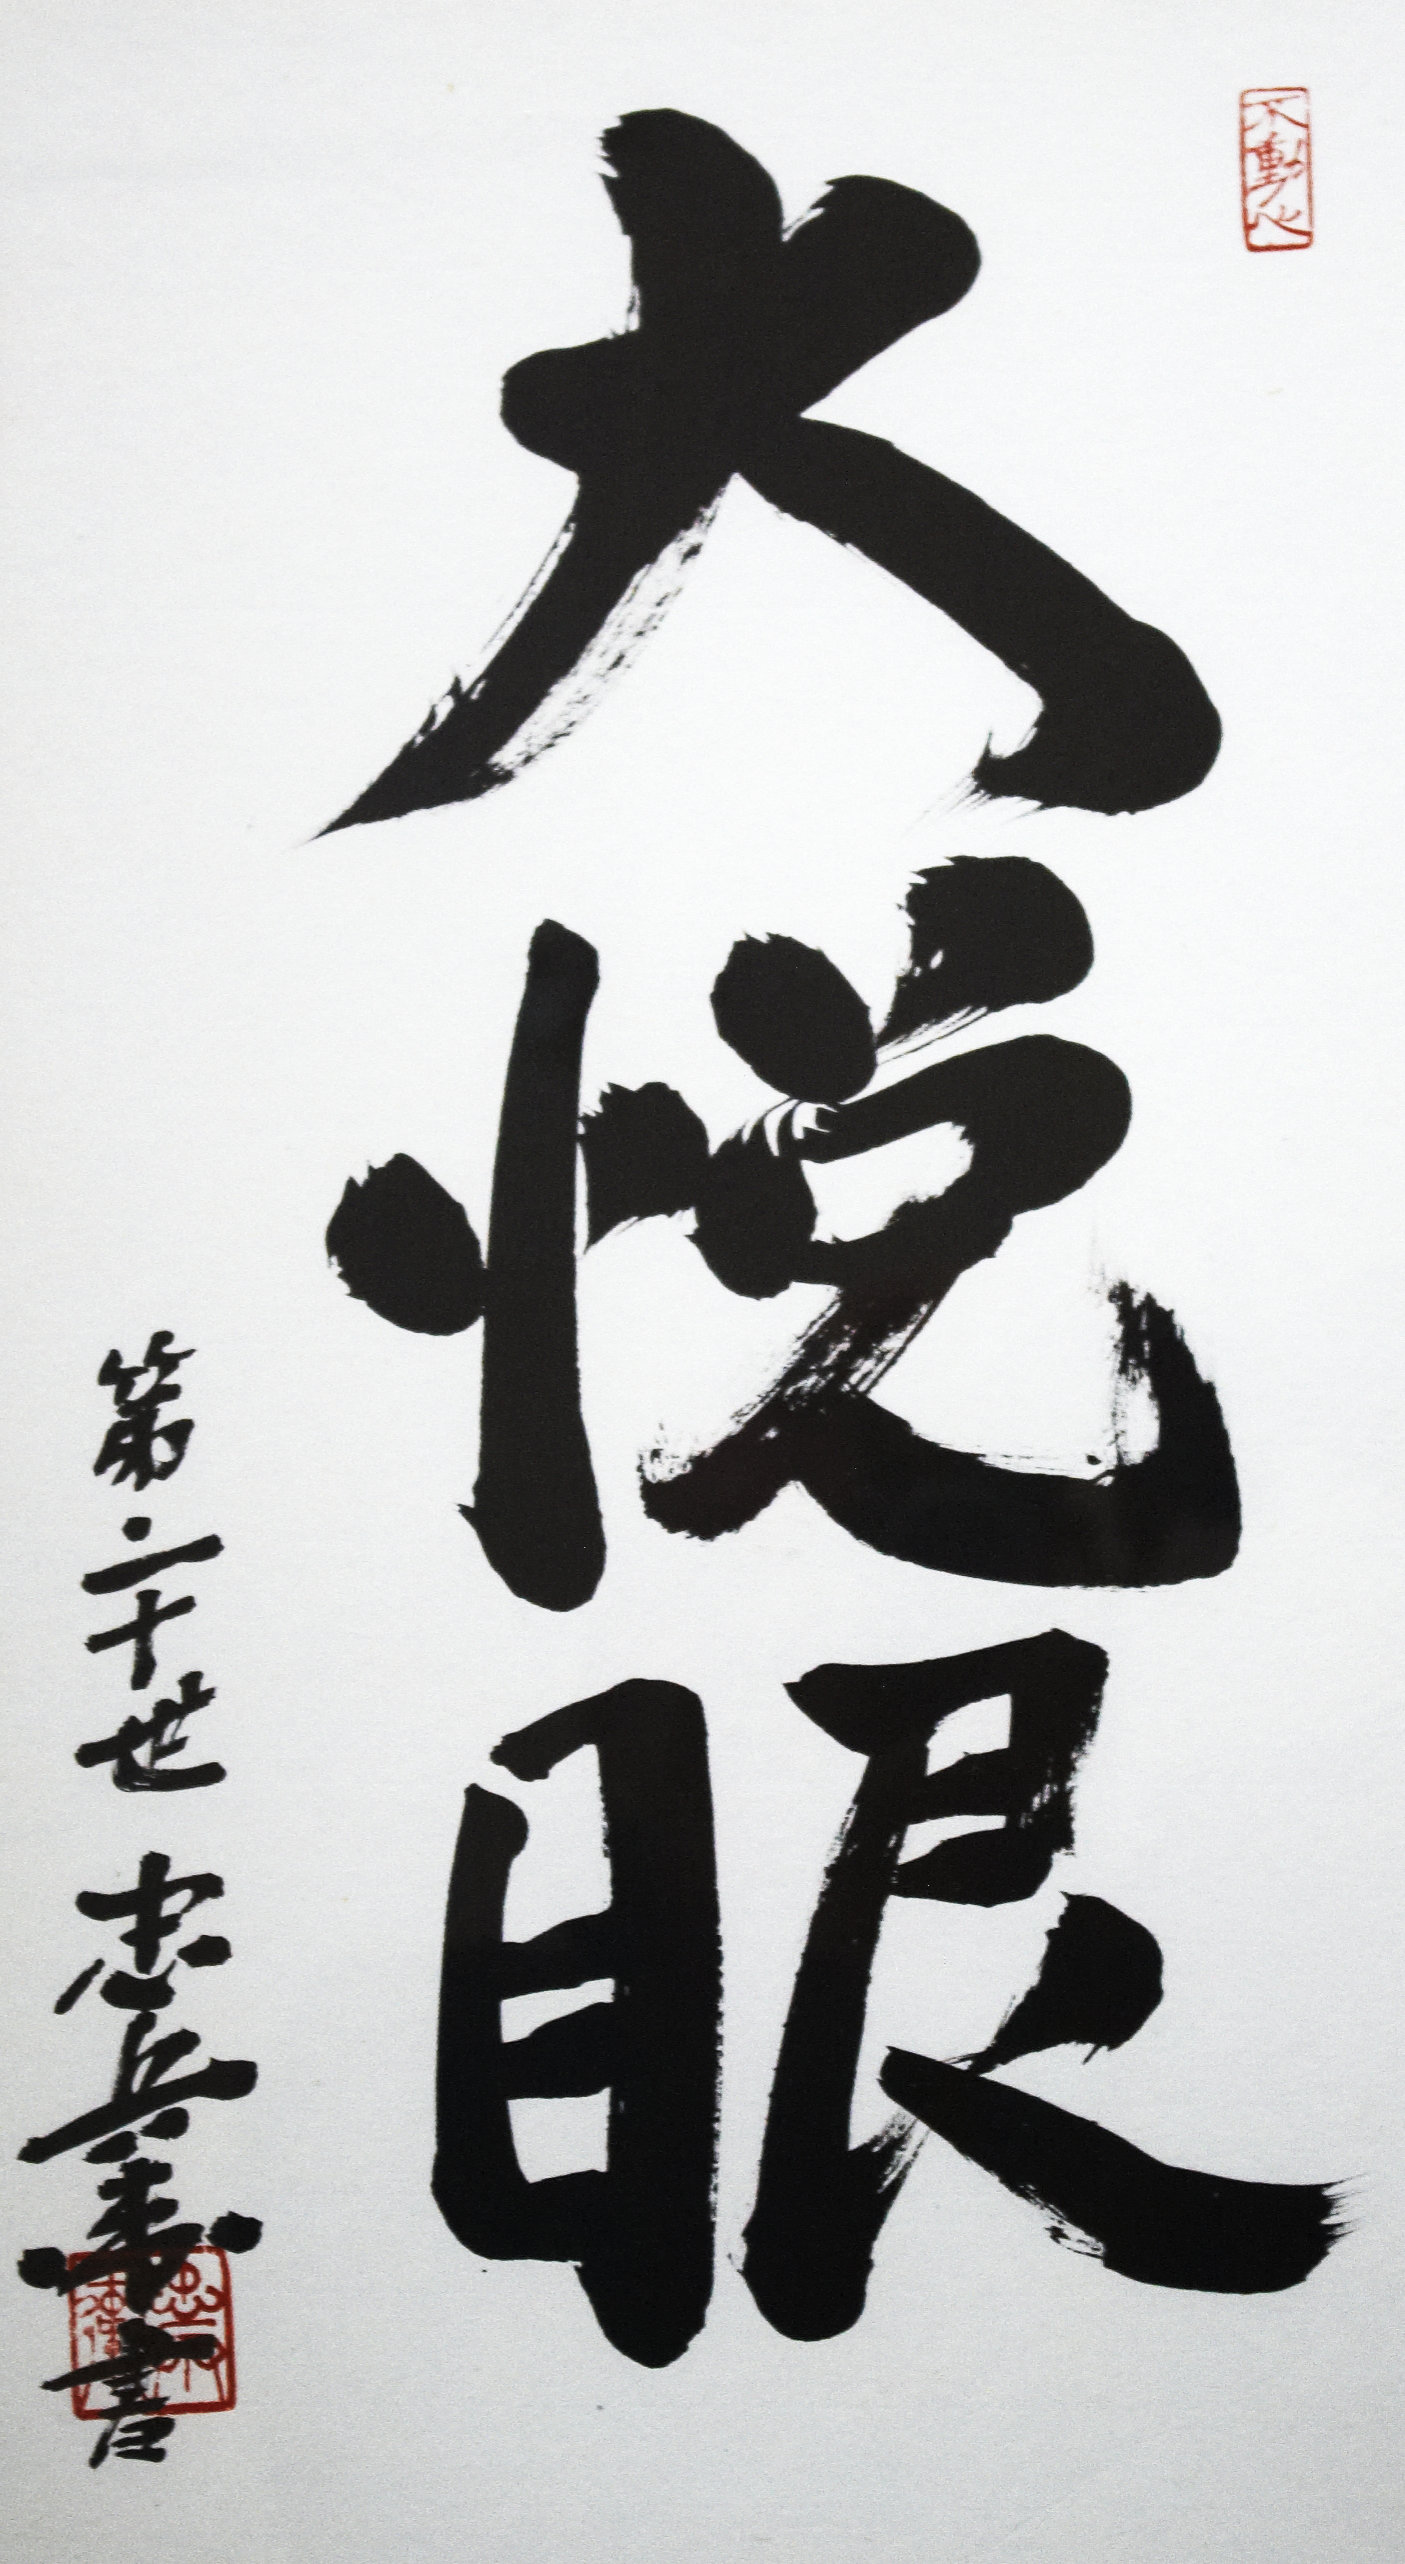 不動心
大悦眼
第二十世 忠兵衛書